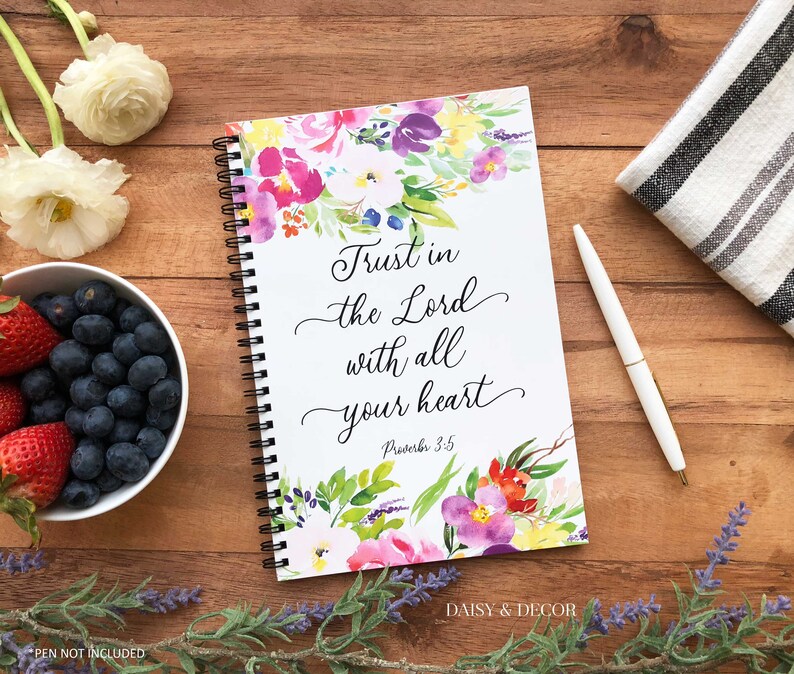 Trust in
the Lord
with all
your heart
Proverbs 3:5
DAISY & DECOR
*PEN NOT INCLUDED